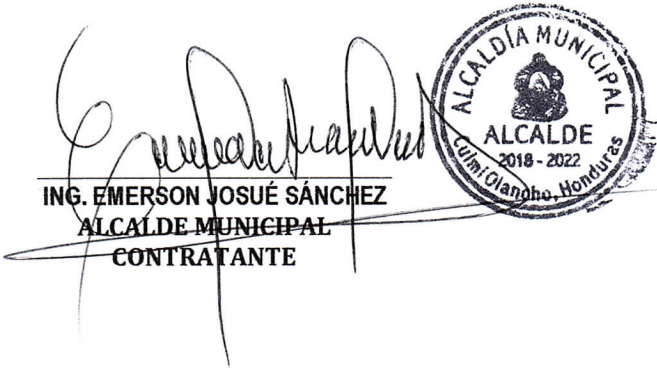 ALCALDÍA MUNICIPAL
ALCALDE
2018 - 2022
Culmi Olancho, Honduras
ING. EMERSON JOSUÉ SÁNCHEZ
ALCALDE MUNICIPAL
CONTRATANTE